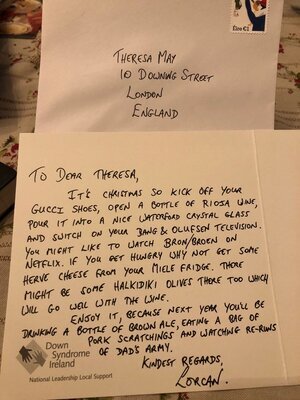 éire €1
THERESA MAY
10 DOWNING STREET
LONDON
ENGLAND
TO DEAR THERESA,
IT'S CHRISTMAS SO KICK OFF YOUR
GUCCI SHOES, OPEN A BOTTLE OF RIOJA WINE,
POUR IT INTO A NICE WATERFORD CRYSTAL GLASS
AND SWITCH ON YOUR BANG & OLUFSEN TELEVISION.
YOU MIGHT LIKE TO WATCH BRON/BROEN ON
NETFLIX. IF YOU GET HUNGRY WHY NOT GET SOME
HERVE CHEESE FROM YOUR MIELE FRIDGE. THERE
MIGHT BE SOME HALKIDIKI OLIVES THERE TOO WHICH
WILL GO WELL WITH THE WINE.
ENJOY IT, BECAUSE NEXT YEAR YOU'LL BE
DRINKING A BOTTLE OF BROWN ALE, EATING A BAG OF
PORK SCRATCHINGS AND WATCHING RE-RUNS
OF DAD'S ARMY.
KINDEST REGARDS,
LORCAN.
Down
Syndrome
Ireland
National Leadership Local Support